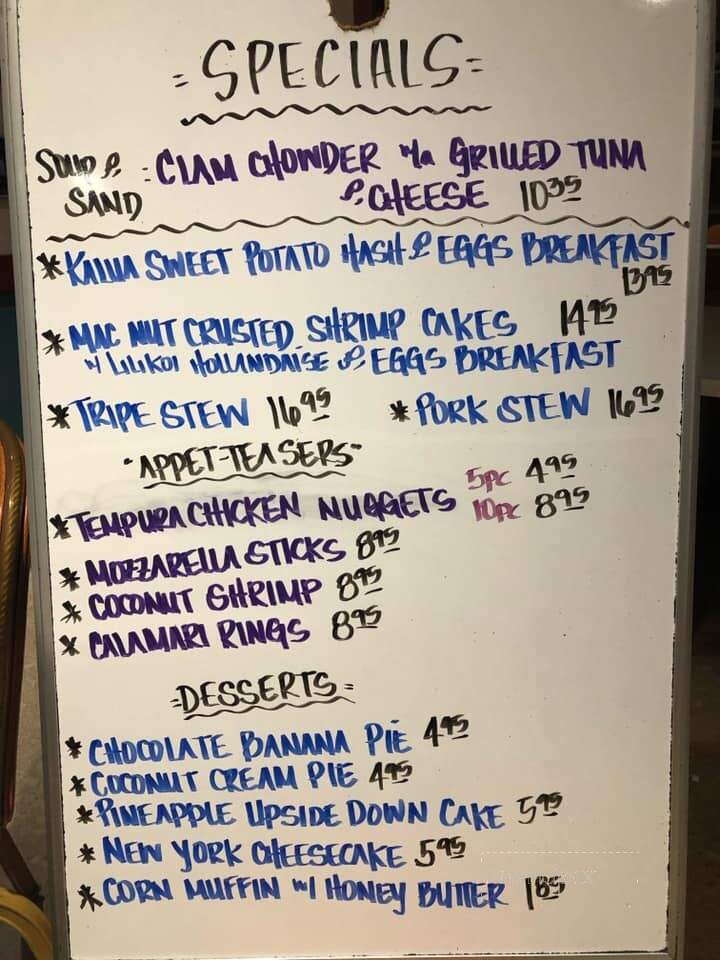 = SPECIALS =
SOUP & SAND : CLAM CHOWDER w/a GRILLED TUNA
& CHEESE 10.35
* KALUA SWEET POTATO HASH & EGGS BREAKFAST
13.95
* MAC NUT CRUSTED SHRIMP CAKES 14.95
w/ LILIKOI HOLLANDAISE & EGGS BREAKFAST
* TRIPE STEW 16.95 * PORK STEW 16.95
"APPET-TEASERS"
* TEMPURA CHICKEN NUGGETS 5pc 4.95
10pc 8.95
* MOZZARELLA STICKS 8.95
* COCONUT SHRIMP 8.95
* CALAMARI RINGS 8.95
= DESSERTS =
* CHOCOLATE BANANA PIE 4.95
* COCONUT CREAM PIE 4.95
* PINEAPPLE UPSIDE DOWN CAKE 5.95
* NEW YORK CHEESECAKE 5.95
* CORN MUFFIN w/ HONEY BUTTER 1.85